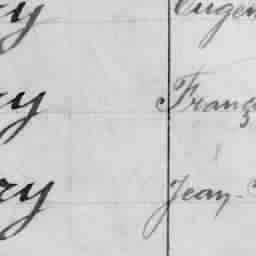 ry Eugen
ry Franç
ry Jean-